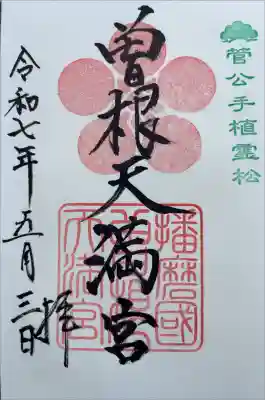 菅公手植霊松
曽根天満宮
播磨國
曽根天
満宮
令和七年五月三日
拝